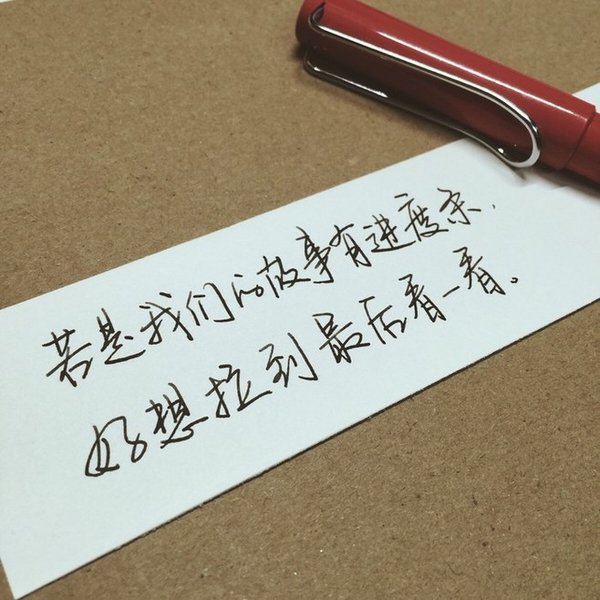 若是我们的故事有进度条,
好想拉到最后看一看。